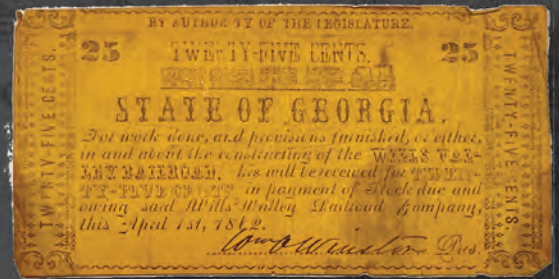 BY AUTHORITY OF THE LEGISLATURE.
25 TWENTY-FIVE CENTS. 25
TWENTY-FIVE CENTS.
TWENTY-FIVE CENTS.
STATE OF GEORGIA.
For work done, and provisions furnished, or either,
in and about the constructing of the WILLS VAL-
LEY RAILROAD, this will be received for TWEN-
TY-FIVE CENTS in payment of Stock due and
owing said Wills Valley Railroad Company,
this April 1st, 1862.
Winston Pres.